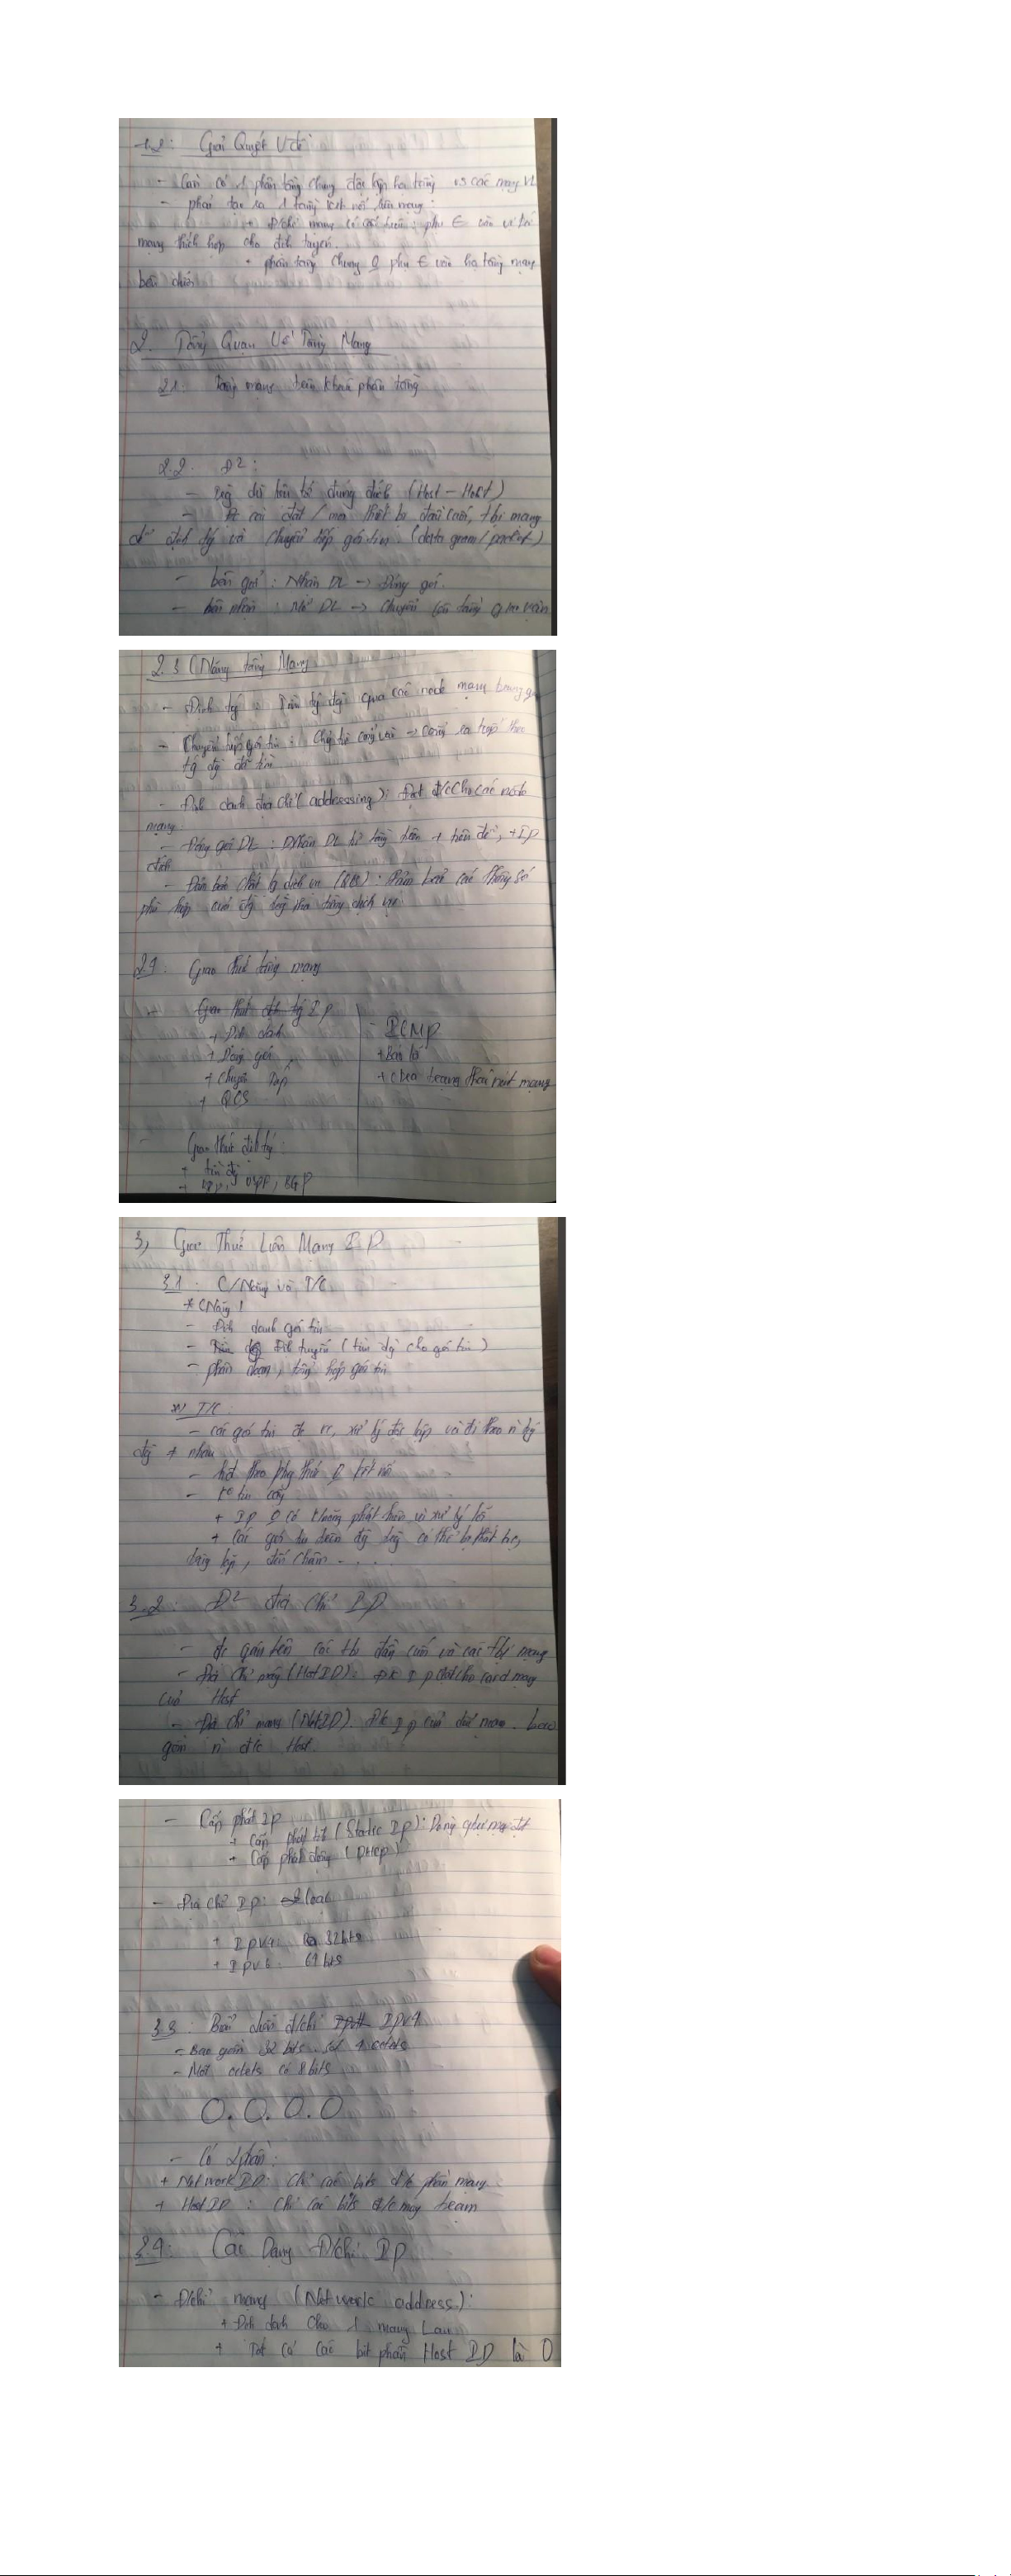 1.2: Giải Quyết Vđề
- Cần có 1 phân tầng chung độc lập hạ tầng vs các mạng VL
- phải tạo ra 1 tầng mới liên mạng:
+ Đ/chỉ mạng có cấu trúc: phụ € vào vị trí
mạng thích hợp cho định tuyến.
+ phân tầng chung 0 phụ € vào hạ tầng mạng
bên dưới
2. Tổng Quan Về Tầng Mạng
2.1: Tầng mạng trên phân tầng
2.2. Đ2:
- dữ liệu đúng đích (Host - Host)
- Đc cài đặt / mọi thiết bị đầu cuối, t/bị mạng
để định tý và chuyển tiếp gói tin. (data gram/packet)
- bên gởi: Nhận DL -> Đóng gói.
- bên nhận: Mở DL -> chuyển lên tầng giao vận
2.3 CNăng tầng Mạng
- Định tý: Tìm đg qua các node mạng trung
- Chuyển tiếp gói tin: Chuyển từ cổng vào -> cổng ra theo
tý đg đã tìm
- Định danh địa chỉ (addressing): Đặt đ/c cho các node
mạng.
- Đóng gói DL: Nhận DL từ tầng trên + tiêu đề, + IP
đích
- Đảm bảo chất lg dịch vụ (QoS): Đảm bảo các thông số
phù hợp của đg theo từng dịch vụ.
2.4: Giao thức tầng mạng
- Giao thức IP
+ Định danh
+ Đóng gói
+ Chuyển tiếp
+ QOS
- ICMP
+ Báo lỗi
+ trạng thái nút mạng
- Giao thức định tý:
+ tìm đg
+ OSPF, BGP
3, Giao Thức Liên Mạng IP
3.1. C/Năng và T/C
* CNăng 1
- Định danh gói tin
- Định tuyến (tìm đg cho gói tin)
- phân đoạn, tổng hợp gói tin
* T/C:
- các gói tin đc xử lý độc lập và đi theo n tý
đg ≠ nhau
- hđ theo phg thức 0 kết nối
- 0 tin cậy
+ IP 0 có phát hiện và xử lý lỗi
+ Các gói tin trên đg có thể bị thất lạc,
trùng lặp, đến chậm ....
3.2: Đ2 địa chỉ IP
- đc gán trên các tbị đầu cuối và các tbị mạng
- Địa chỉ máy (HostID): Đ/c IP đặt cho card mạng
của Host
- Địa chỉ mạng (NetID). Đ/c IP của mạng. bao
gồm n đ/c Host.
- Cấp phát IP
+ Cấp phát tĩnh (Static IP):
+ Cấp phát động (DHCP)
- Địa chỉ IP: 2 loại
+ IPv4: 32 bits
+ IPv6: 64 bits
3.3: Biểu diễn đ/chỉ IPv4
- Bao gồm 32 bits 4 octets
- Mỗi octets có 8 bits
0.0.0.0
- Có 2 phần:
+ NetworkID: Chỉ các bits đ/c phần mạng
+ HostID: Chỉ các bits đ/c máy trạm
3.4: Các Dạng Đ/chỉ IP
- Đ/chỉ mạng (Network address):
+ Định danh cho 1 mạng Lan
+ Tất cả các bit phần Host ID là 0